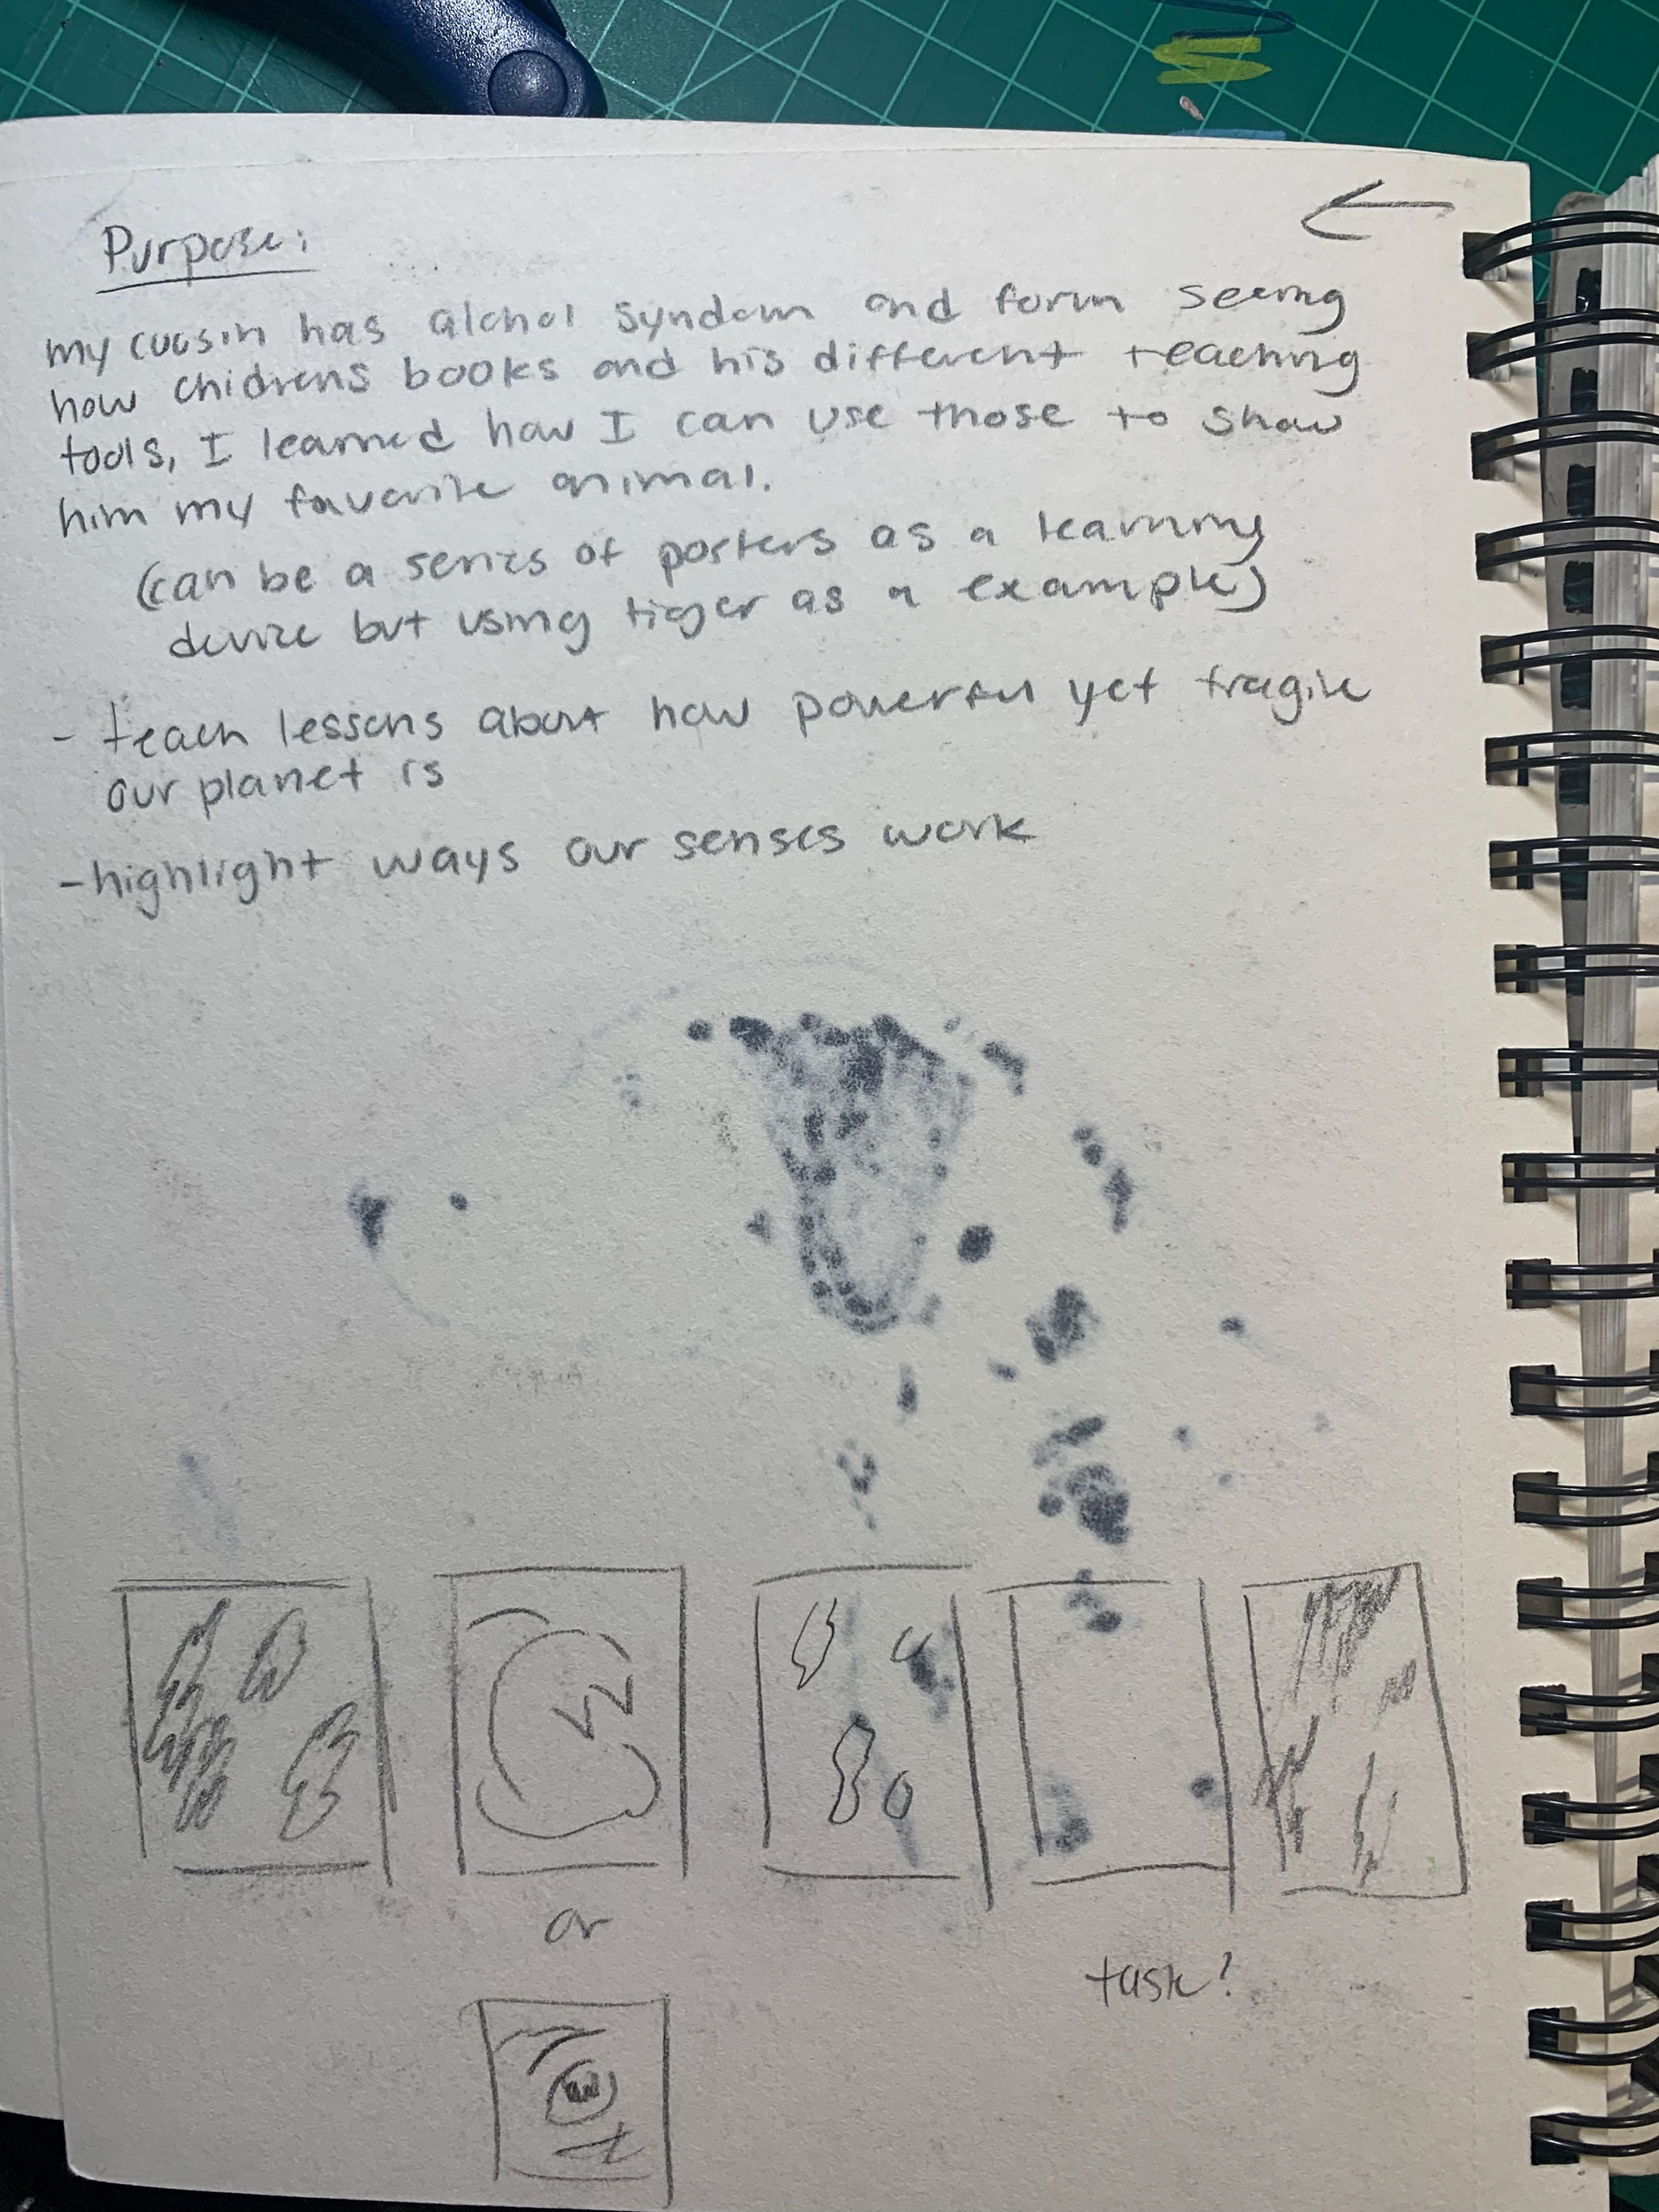 Purpose:
my cuosin has alchol syndom and form seeing
how chidrens books and his different teaching
tools, I learned how I can use those to show
him my favorite animal.
(can be a series of posters as a learning
device but using tiger as a example)
- teach lessons about how powerful yet fragile
our planet is
- highlight ways our senses work
or